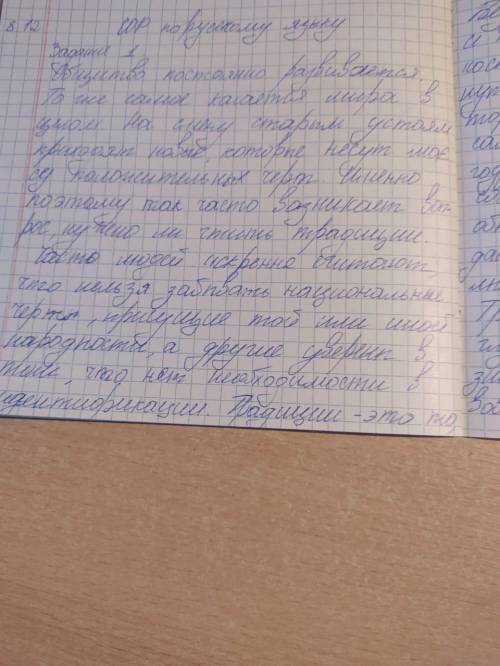 8.12 СОР по русскому языку
Задание 1
Общество постоянно развивается.
То же самое касается мира в
целом На смену старым устоям
приходят новые, которые несут мас
су положительных черт. Именно
поэтому так часто возникает воп
рос, нужно ли чтить традиции.
Часть людей искренне считают,
что нельзя забывать национальные
черты, присущие той или иной
народности, а другие уверены в
том, что нет необходимости в
идентификации. Традиции - это то,